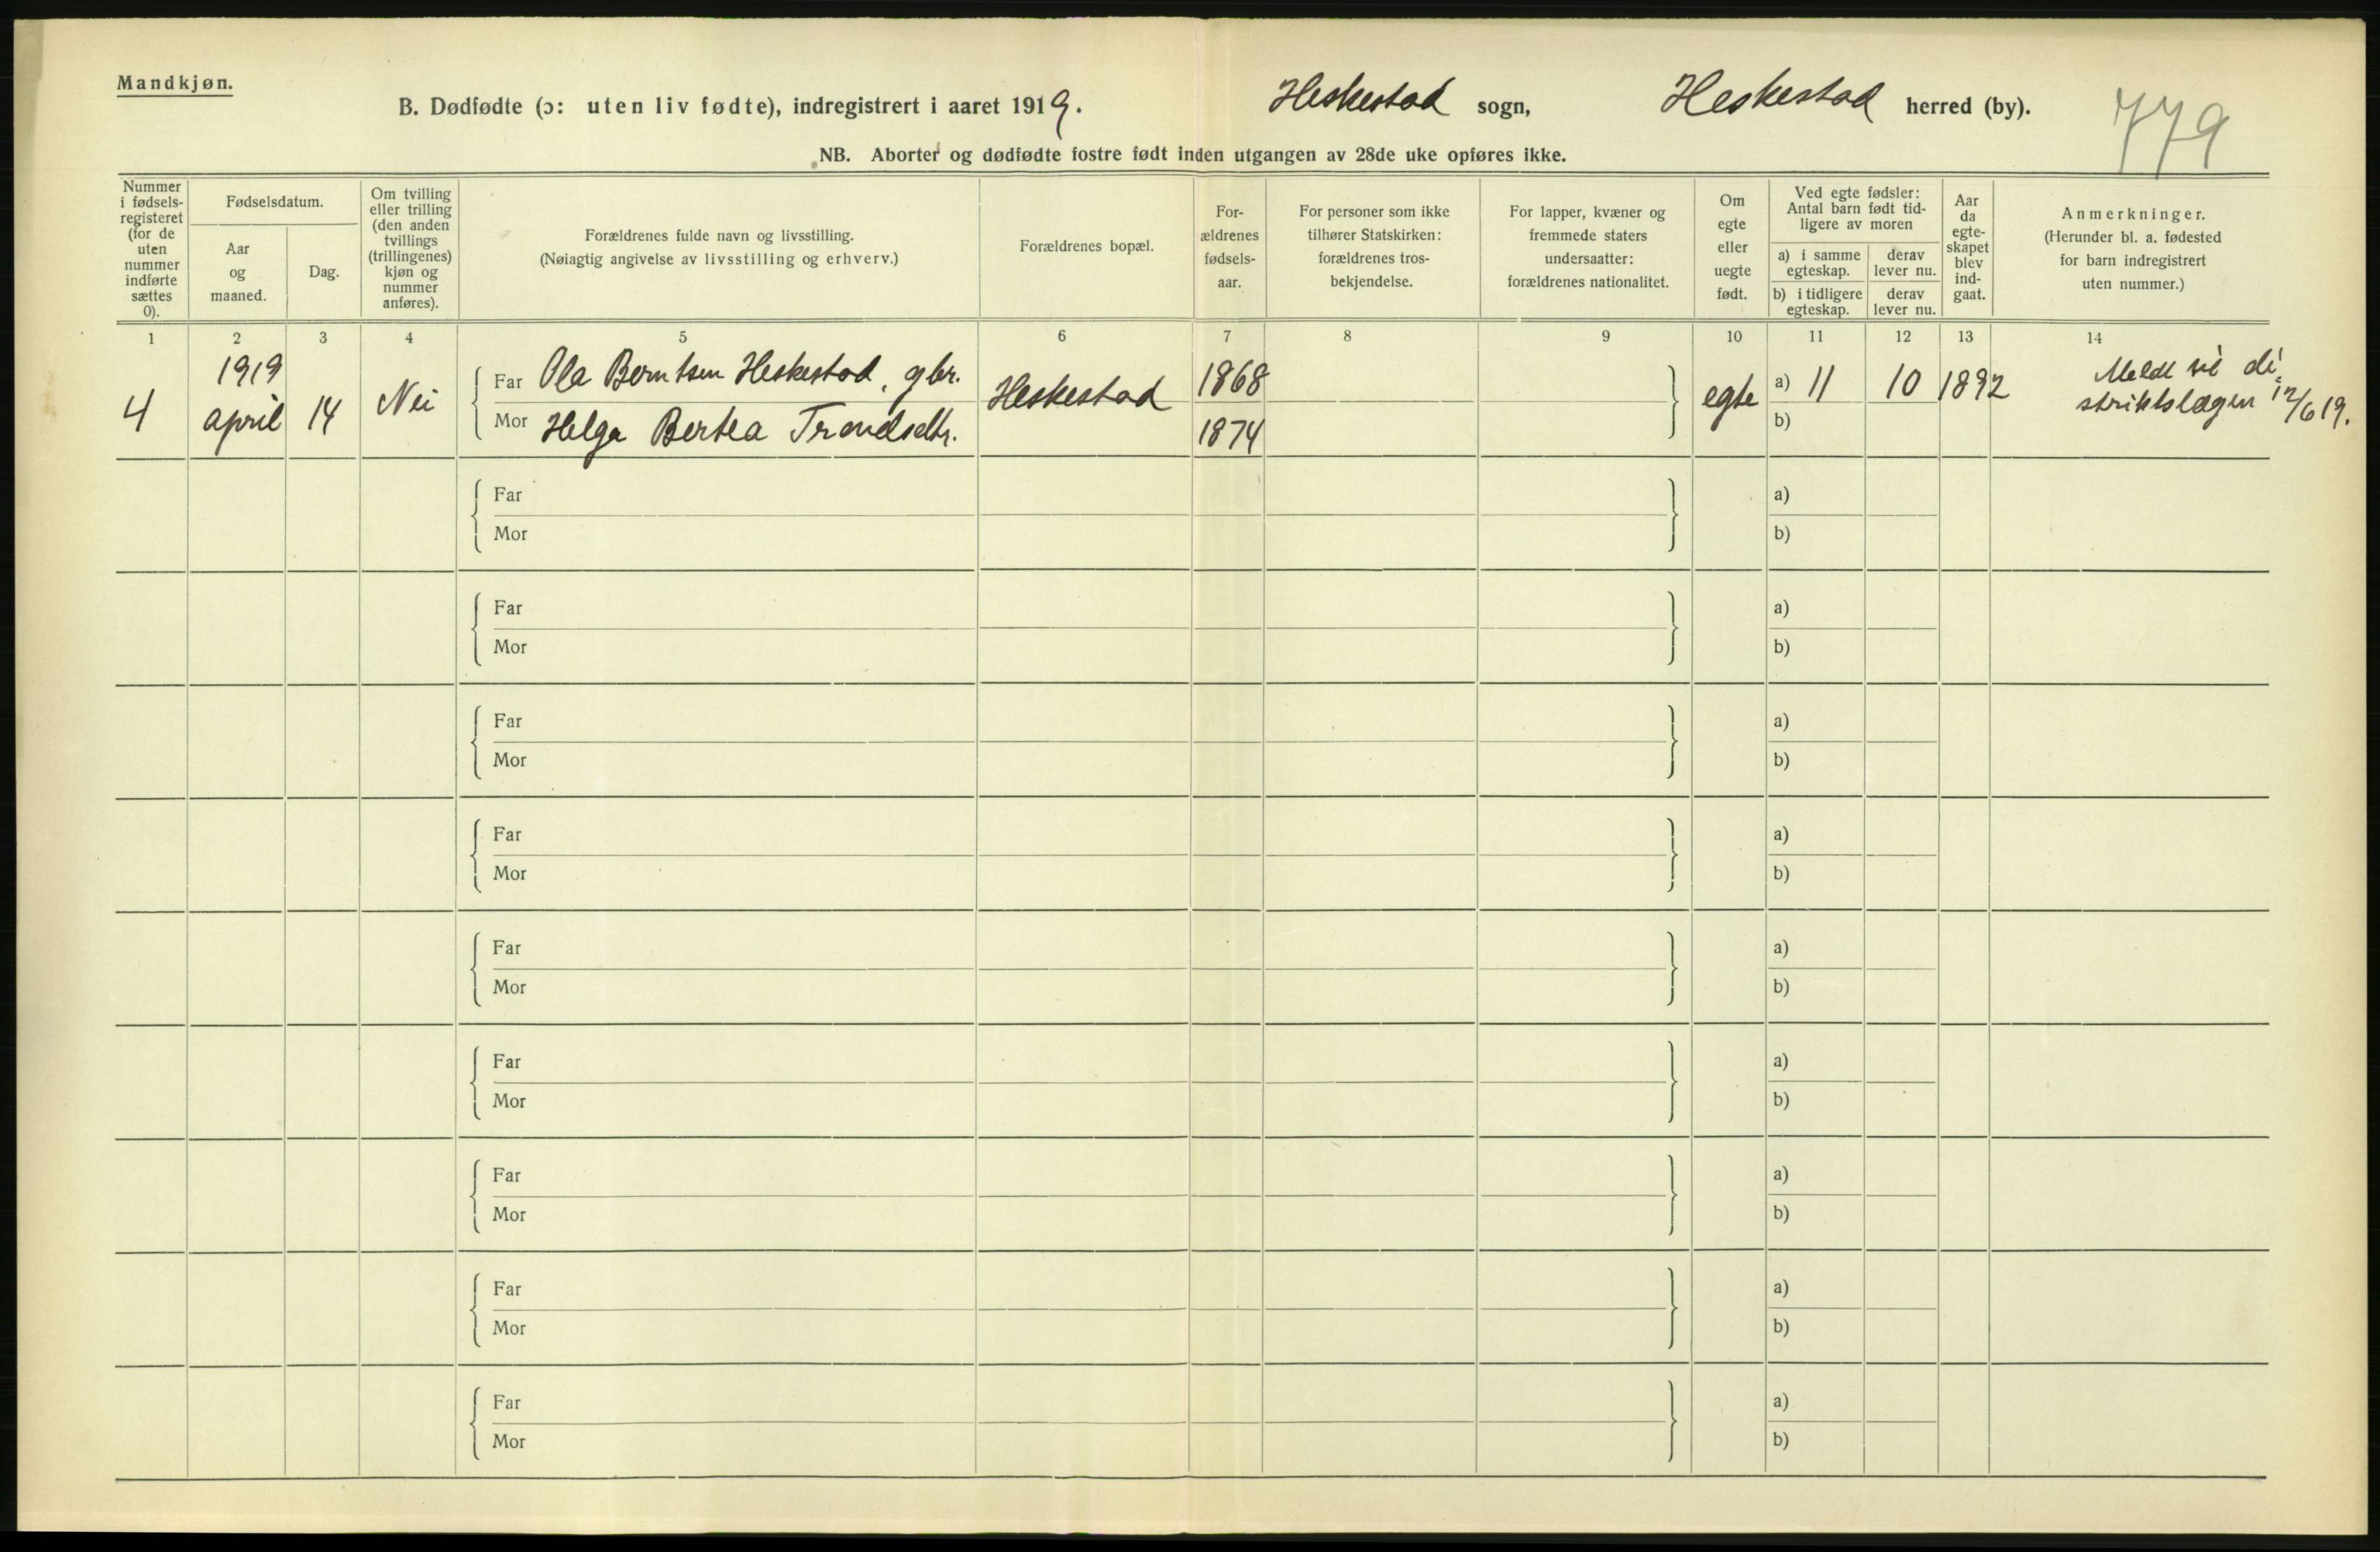 Mandkjøn.
B. Dødfødte (ɔ: uten liv fødte), indregistrert i aaret 1919. Heskestad sogn, Heskestad herred (by).
779
NB. Aborter og dødfødte fostre født inden utgangen av 28de uke opføres ikke.
Nummer
i fødsels-
registeret
(for de
uten
nummer
indførte
sættes
0).
Fødselsdatum.
Aar
og
maaned.
Dag.
Om tvilling
eller trilling
(den anden
tvillings
(trillingenes)
kjøn og
nummer
anføres).
Forældrenes fulde navn og livsstilling.
(Nøiagtig angivelse av livsstilling og erhverv.)
Forældrenes bopæl.
For-
ældrenes
fødsels-
aar.
For personer som ikke
tilhører Statskirken:
forældrenes tros-
bekjendelse.
For lapper, kvæner og
fremmede staters
undersaatter:
forældrenes nationalitet.
Om
egte
eller
uegte
født.
Ved egte fødsler:
Antal barn født tid-
ligere av moren
a) i samme
egteskap.
derav
lever nu.
b) i tidligere
egteskap.
derav
lever nu.
Aar
da
egte-
skapet
blev
ind-
gaat.
Anmerkninger.
(Herunder bl. a. fødested
for barn indregistrert
uten nummer.)
1 2 3 4 5 6 7 8 9 10 11 12 13 14
4
1919
april
14
Nei
Far Ola Berntsen Heskestad, gbr.
Mor Helga Bertea Trondsdtr.
Heskestad
1868
1874
egte
a) 11
b)
10
1892
Meldt til di-
striktslægen 12/6 19.
Far a)
Mor b)
Far a)
Mor b)
Far a)
Mor b)
Far a)
Mor b)
Far a)
Mor b)
Far a)
Mor b)
Far a)
Mor b)
Far a)
Mor b)
Far a)
Mor b)